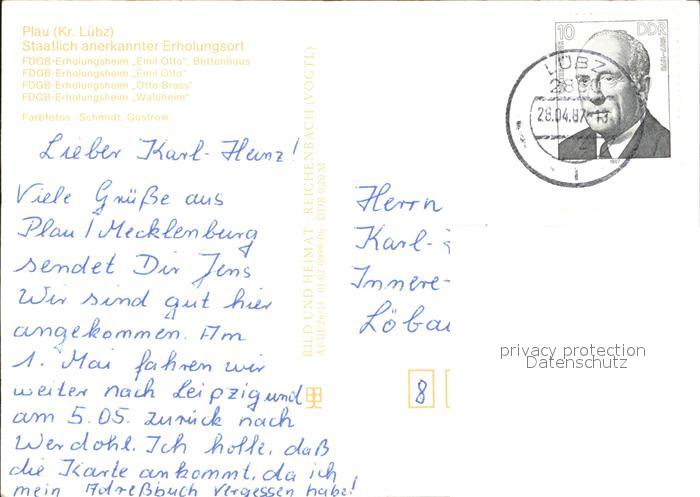 Plau (Kr. Lübz)
Staatlich anerkannter Erholungsort
FDGB-Erholungsheim „Emil Otto", Bettenhaus
FDGB-Erholungsheim „Emil Otto"
FDGB-Erholungsheim „Otto Brass"
FDGB-Erholungsheim „Waldheim"
Farbfotos: Schmidt, Güstrow
Lieber Karl-Heinz!
Viele Grüße aus
Plau / Mecklenburg
sendet Dir Jens
Wir sind gut hier
angekommen. Am
1. Mai fahren wir
weiter nach Leipzig und
am 5.05. zurück nach
Werdohl. Ich hoffe, daß
die Karte ankommt, da ich
mein Adreßbuch vergessen habe!
BILD UND HEIMAT REICHENBACH (VOGTL)
10 DDR
LÜBZ
28.04.87
1
Herrn
Karl-
Innere-
Löbau
8
privacy protection
Datenschutz